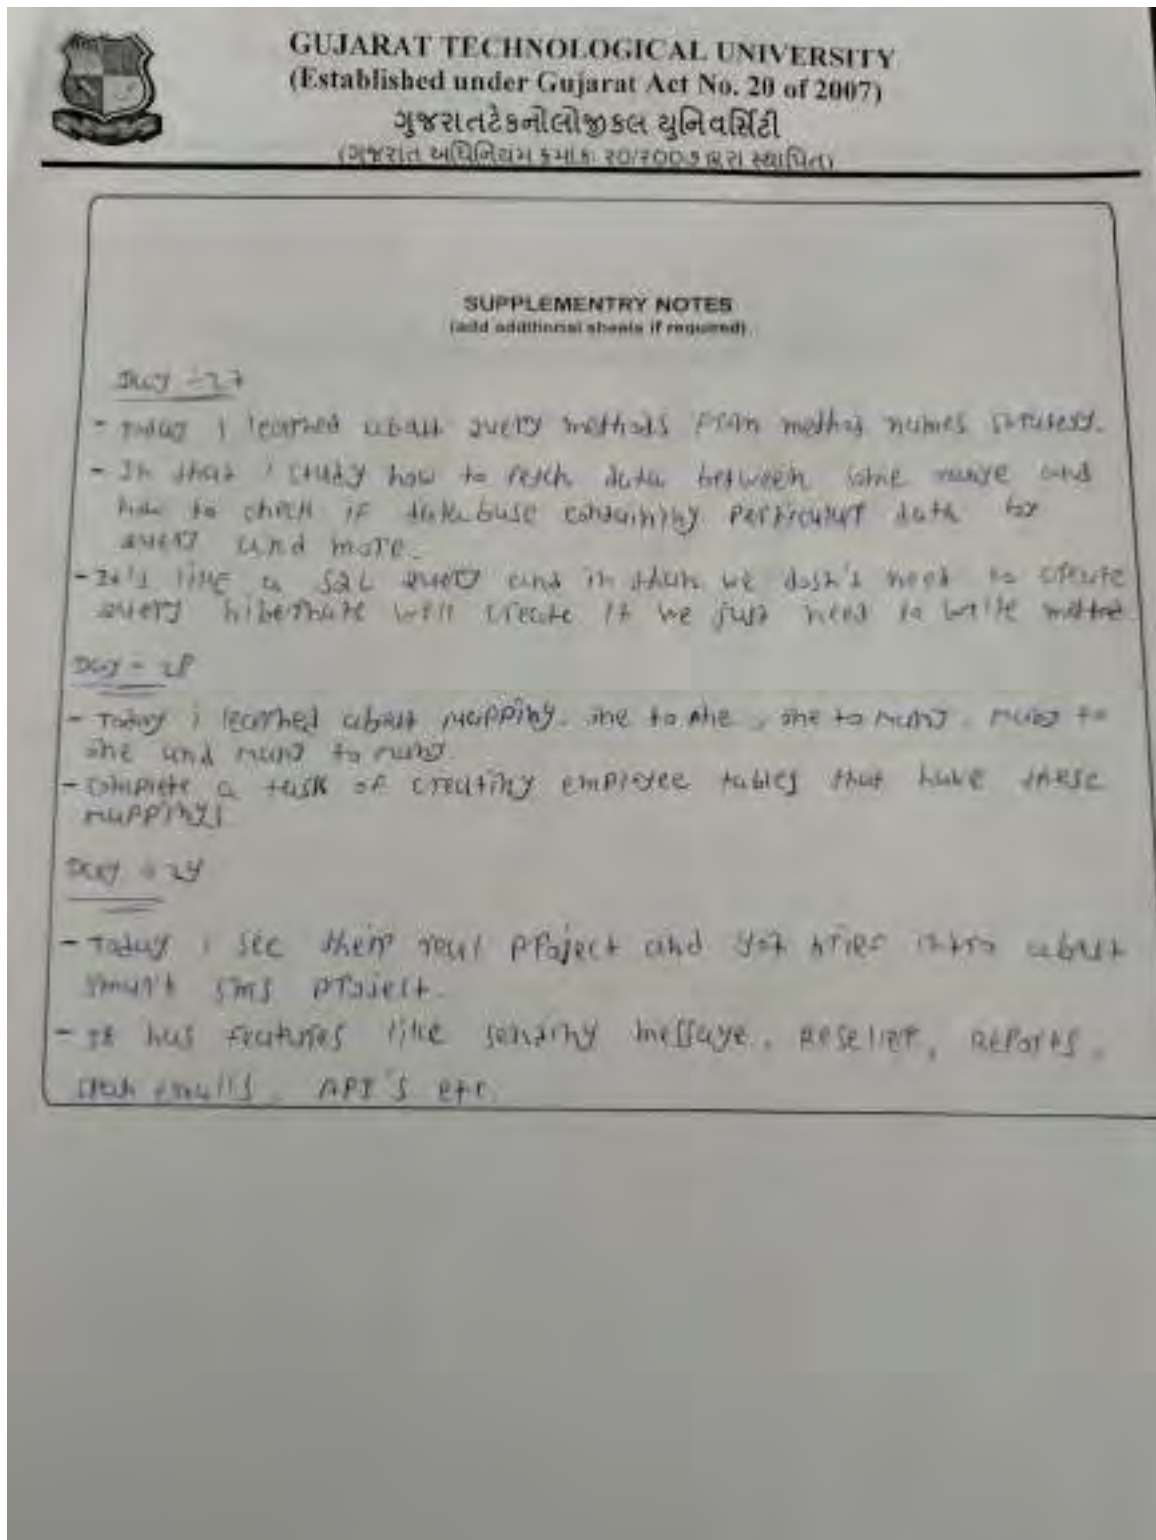 GUJARAT TECHNOLOGICAL UNIVERSITY
(Established under Gujarat Act No. 20 of 2007)
ગુજરાતટેકનોલોજીકલ યુનિવર્સિટી
(ગુજરાત અધિનિયમ ક્રમાંક: ૨૦/૨૦૦૭ દ્વારા સ્થાપિત)
SUPPLEMENTRY NOTES
(add additional sheets if required)
Day - 27
- Today i learned about query methods from method names strategy.
- In that i study how to fetch data between some range and
how to check if database containing perticular data by
query and more.
- It's like a SQL query and in that we dosn't need to create
query hibernate will create it we just need to write method
Day - 28
- Today i learned about mapping. one to one, one to many, many to
one and many to many.
- complete a task of creating employee tables that have these
mappings
Day - 29
- Today i see there real project and got brief intro about
smart sms project.
- It has features like sending message, Reseller, Reports,
emails, API's etc.